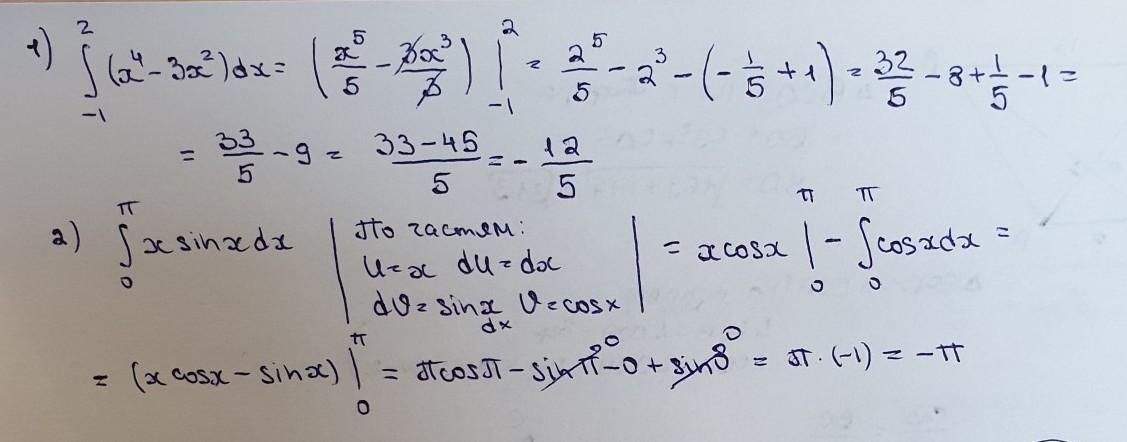 1) ∫_{-1}^{2} (x⁴ - 3x²)dx = (x⁵/5 - 3x³/3) |_{-1}^{2} = 2⁵/5 - 2³ - (-1/5 + 1) = 32/5 - 8 + 1/5 - 1 =
= 33/5 - 9 = (33-45)/5 = - 12/5
2) ∫_{0}^{π} x sinx dx | По частям: u=x du=dx dv=sinx dx v=cosx | = x cosx |_{0}^{π} - ∫_{0}^{π} cosx dx =
= (x cosx - sinx) |_{0}^{π} = π cosπ - sinπ⁰ - 0 + sin0⁰ = π · (-1) = -π